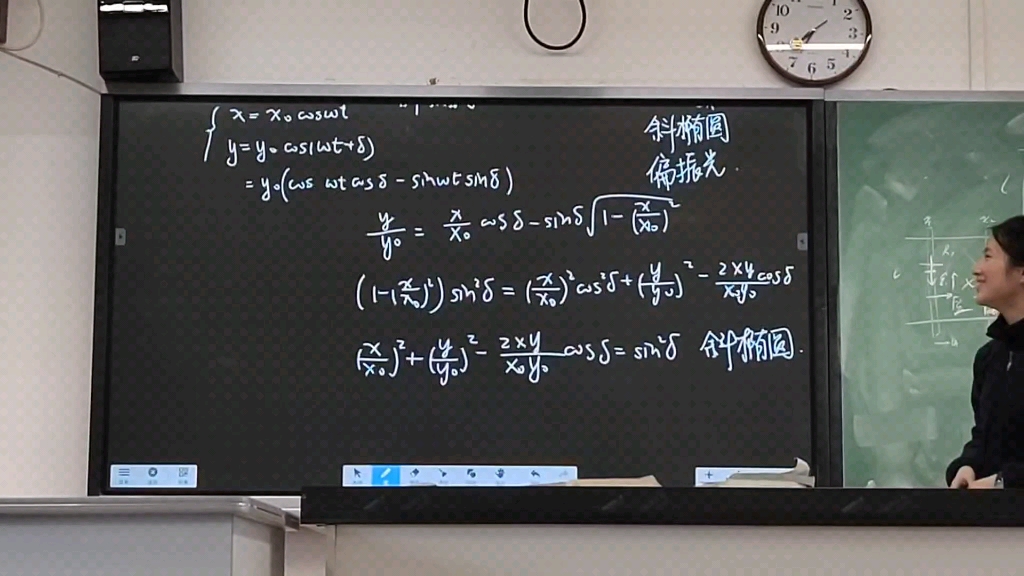 x = x₀ cosωt
y = y₀ cos(ωt+δ)
= y₀(cos ωt cosδ − sinωt sinδ)
y/y₀ = x/x₀ cosδ − sinδ√(1−(x/x₀)²)
(1−(x/x₀)²) sin²δ = (x/x₀)² cos²δ + (y/y₀)² − 2xy/x₀y₀ cosδ
(x/x₀)² + (y/y₀)² − 2xy/x₀y₀ cosδ = sin²δ 斜椭圆.
斜椭圆
偏振光.
10
9
8
7
6
5
4
3
2